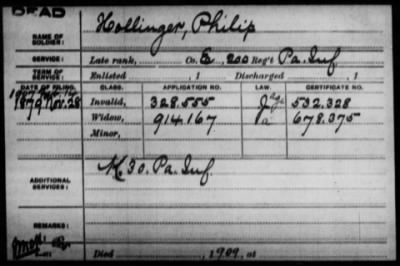 DEAD
NAME OF SOLDIER: Hollinger, Philip
SERVICE: Late rank, Co. E, 200 Reg't Pa. Inf
TERM OF SERVICE: Enlisted , 1 Discharged , 1
DATE OF FILING. CLASS. APPLICATION NO. LAW. CERTIFICATE NO.
1879 Nov. 28 Invalid, 328.555 532.328
Widow, 914.167 678.375
Minor,
ADDITIONAL SERVICES: K. 30. Pa. Inf.
REMARKS:
Died , 1909, at